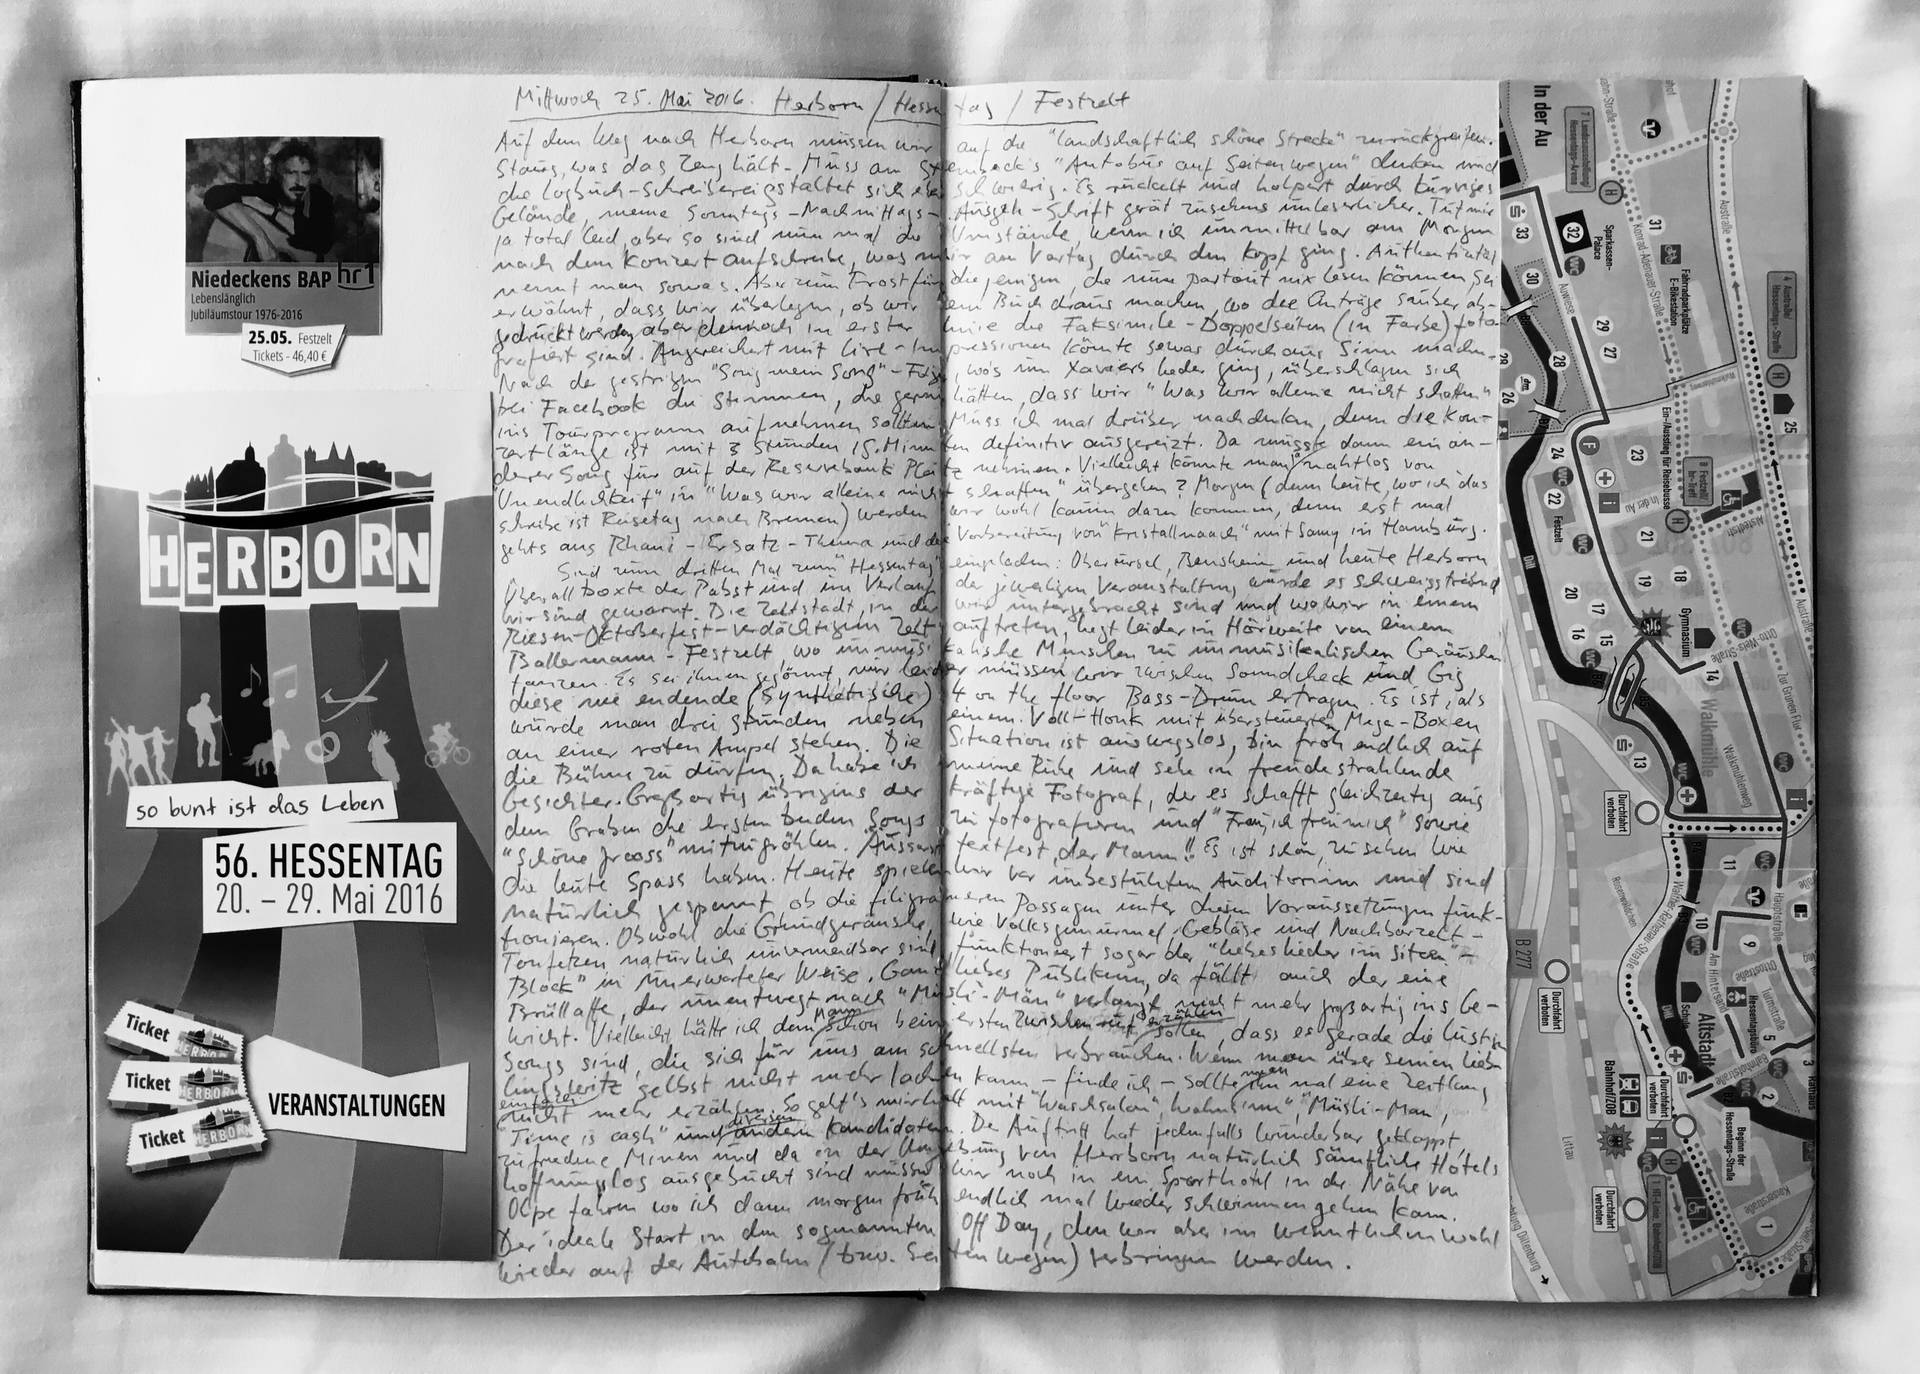 Niedeckens BAP hr1
Lebenslänglich
Jubiläumstour 1976-2016
25.05. Festzelt
Tickets - 46,40 €
HERBORN
so bunt ist das Leben
56. HESSENTAG
20. – 29. Mai 2016
Ticket
Ticket
Ticket
VERANSTALTUNGEN
Mittwoch 25. Mai 2016. Herborn / Hessentag / Festzelt
Auf dem Weg nach Herborn müssen wir auf die "landschaftlich schöne Strecke" zurückgreifen.
Staus, was das Zeug hält. Muss an Steinbeck's "Autobus auf Seitenwegen" denken und
die Logbuch-Schreiberei gestaltet sich eher schwierig. Es ruckelt und holpert durch kurviges
Gelände, meine Sonntags-Nachmittags-Ausgeh-Schrift gerät zusehens unleserlicher. Tut mir
ja total leid, aber so sind nun mal die Umstände, wenn ich unmittelbar am Morgen
nach dem Konzert aufschreibe, was mir am Vortag durch den Kopf ging. Authentizität
nennt man sowas. Aber zum Trost für diejenigen, die nun partout nix lesen können sei
erwähnt, dass wir überlegen, ob wir ein Buch draus machen, wo die Einträge sauber ab-
gedruckt werden, aber dennoch in erster Linie die Faksimile-Doppelseiten (in Farbe) foto-
grafiert sind. Angereichert mit Live-Impressionen könnte sowas durchaus Sinn machen.
Nach der gestrigen "Sing mein Song"-Folge, wo's um Xaviers Lieder ging, überschlagen sich
bei Facebook die Stimmen, die gerne hätten, dass wir "Was wir alleine nicht schaffen"
ins Tourprogramm aufnehmen sollten. Muss ich mal drüber nachdenken, denn die Kon-
zertlänge ist mit 3 Stunden 15 Minuten definitiv ausgereizt. Da müsste dann ein an-
derer Song für auf der Reservebank Platz nehmen. Vielleicht könnte man nahtlos von
"Unendlichkeit" in "Was wir alleine nicht schaffen" übergehen? Morgen (denn heute, wo ich das
schreibe ist Reisetag nach Bremen) werden wir wohl kaum dazu kommen, denn erst mal
gehts ans Rhani-Ersatz-Thema und die Vorbereitung von "Kristallnaach" mit Samy in Hamburg.
Sind zum dritten Mal zum "Hessentag" eingeladen: Oberursel, Bensheim und heute Herborn
Überall boxte der Pabst und im Verlauf der jeweiligen Veranstaltung wurde es schweisstreibend
wir sind gewarnt. Die Zeltstadt, in der wir untergebracht sind und wo wir in einem
Riesen-Oktoberfest-verdächtigem Zelt auftreten, liegt leider in Hörweite von einem
Ballermann-Festzelt, wo unmusikalische Menschen zu unmusikalischen Geräuschen
tanzen. Es sei ihnen gegönnt, nur leider müssen wir zwischen Soundcheck und Gig
diese nie endende (synthetische) 4 on the floor Bass-Drum ertragen. Es ist, als
würde man drei Stunden neben einem Voll-Honk mit übersteuerten Mega-Boxen
an einer roten Ampel stehen. Die Situation ist ausweglos, bin froh endlich auf
die Bühne zu dürfen. Da habe ich meine Ruhe und sehe in freudestrahlende
Gesichter. Großartig übrigens der kräftige Fotograf, der es schafft gleichzeitig aus
dem Graben die ersten beiden Songs zu fotografieren und "Frau, ich freu mich" sowie
"Schöne Jrooss" mitzugröhlen. Äusserst textfest, der Mann! Es ist schön, zu sehen wie
die Leute Spass haben. Heute spielen wir vor unbestuhltem Auditorium und sind
natürlich gespannt ob die filigraneren Passagen unter diesen Voraussetzungen funk-
tionieren. Obwohl die Grundgeräusche, wie Volksgemurmel, Gebläse und Nachbarzelt-
Tonfetzen natürlich unvermeidbar sind, funktioniert sogar der "Liebeslieder im Sitzen"-
Block" in unerwarteter Weise. Ganz liebes Publikum, da fällt auch der eine
Brüllaffe, der unentwegt nach "Müsli-Män" verlangt nicht mehr großartig ins Ge-
wicht. Vielleicht hätte ich dem Mann schon beim ersten Zwischenruf erzählen sollen, dass es gerade die lustigen
Songs sind, die sich für uns am schnellsten verbrauchen. Wenn man über seinen Lieb-
lingswitz selbst nicht mehr lachen kann – finde ich – sollte man ihn mal eine Zeitlang
einfach nicht mehr erzählen. So geht's mir halt mit "Waschsalon", "Wahnsinn", "Müsli-Man",
"Time is cash" und diversen anderen Kandidaten. Der Auftritt hat jedenfalls wunderbar geklappt,
zufriedene Minen und da in der Umgebung von Herrborn natürlich sämtliche Hotels
hoffnungslos ausgebucht sind müssen wir noch in ein Sporthotel in der Nähe von
Olpe fahren wo ich dann morgen früh endlich mal wieder schwimmen gehen kann.
Der ideale Start in den sogenannten Off Day, den wir aber im wesentlichen wohl
wieder auf der Autobahn (bzw. Seitenwegen) verbringen werden.
In der Au
7 Landesausstellung/
Hessentags-Arena
Sparkassen-
Palace
Auwiese
Konrad-Adenauer-Straße
Fahrradparkplätze
E-Bikestation
Austraße
4 Austraße/
Hessentags-Straße
33
32
31
30
29
28
27
26
25
24
23
22
Festzelt
WC
dm
Ein-/Ausstieg für Reisebusse
In der Au
8 Festzelt/
hr-Treff
Alsbachstr.
21
20
19
18
17
16
15
14
13
Dill
Gymnasium
Otto-Wels-Straße
Zur Grünen Flur
Walkmühle
Walkmühlenweg
Durchfahrt
verboten
11
10
9
B 277
Durchfahrt
verboten
Walther-Rathenau-Straße
Am Hintersand
Hauptstraße
Ottostraße
Turmstraße
Hessentagsbüro
Schule
Altstadt
Dill
5
3
2
1
Bahnhofstraße
Bahnhof/ZOB
Durchfahrt
verboten
Beginn der
Hessentags-Straße
Littau
Durchfahrt
verboten
Kaiserstraße
Richtung Dillenburg